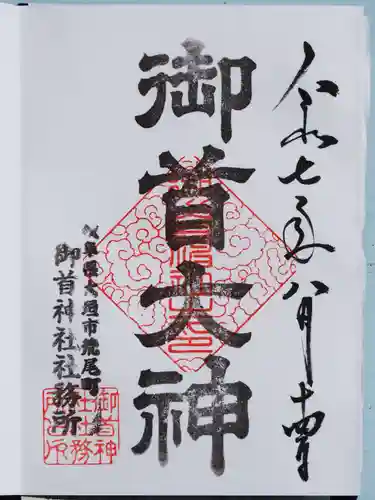 令和七年八月十四日
御首大神
岐阜県大垣市荒尾町
御首神社社務所
御首神社社務所